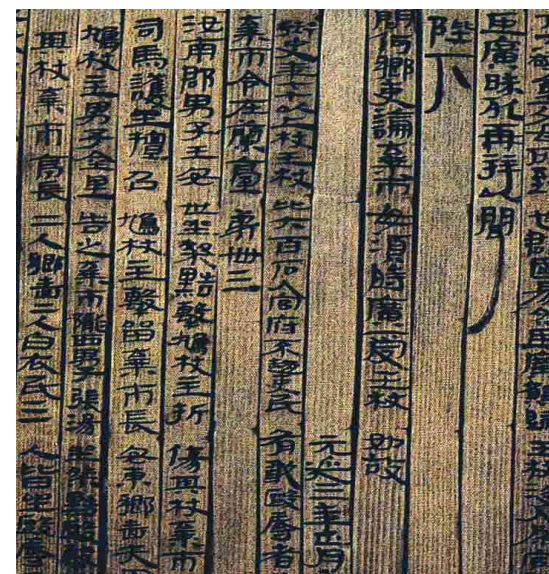 也郡國易然臣廣願歸王杖沒入為官
臣廣昧死再拜以聞
陛下
問何鄉吏論棄市毋須時廣受王杖如故
元延三年正月
年七十以上杖王杖比六百石入官府不趨吏民有敢毆辱者
棄市令在蘭臺第卅三
汝南郡男子王安世坐桀黠擊鳩杖主折傷其杖棄市
司馬護坐擅召鳩杖主擊留棄市長安東鄉嗇夫
鳩杖主男子金里告之棄市隴西男子張湯坐桀黠毆擊
其杖棄市亭長二人鄉嗇二人白衣民三人皆坐毆辱